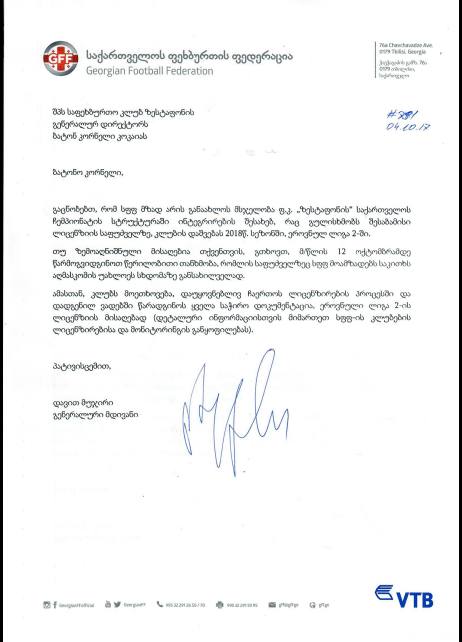 GFF
საქართველოს ფეხბურთის ფედერაცია
Georgian Football Federation
76a Chavchavadze Ave.
0179 Tbilisi, Georgia
ჭავჭავაძის გამზ. 76ა
0179 თბილისი,
საქართველო
შპს საფეხბურთო კლუბ ზესტაფონის
გენერალურ დირექტორს
ბატონ კორნელი კოკაიას
04.10.17
ბატონო კორნელი,
გაცნობებთ, რომ სფფ მზად არის განაახლოს მსჯელობა ფ.კ. „ზესტაფონის" საქართველოს
ჩემპიონატის სტრუქტურაში ინტეგრირების შესახებ, რაც გულისხმობს შესაბამისი
ლიცენზიის საფუძველზე, კლუბის დაშვებას 2018წ. სეზონში, ეროვნულ ლიგა 2-ში.
თუ ზემოაღნიშნული მისაღებია თქვენთვის, გთხოვთ, მ/წლის 12 ოქტომბრამდე
წარმოგვიდგინოთ წერილობითი თანხმობა, რომლის საფუძველზეც სფფ მოამზადებს საკითხს
აღმასკომის უახლოეს სხდომაზე განსახილველად.
ამასთან, კლუბს მოეთხოვება, დაუყოვნებლივ ჩაერთოს ლიცენზირების პროცესში და
დადგენილ ვადებში წარადგინოს ყველა საჭირო დოკუმენტაცია, ეროვნული ლიგა 2-ის
ლიცენზიის მისაღებად (დეტალური ინფორმაციისთვის მიმართეთ სფფ-ის კლუბების
ლიცენზირებისა და მონიტორინგის განყოფილებას).
პატივისცემით,
დავით მუჯირი
გენერალური მდივანი
GeorgianFF
gff@gff.ge
gff.ge
VTB